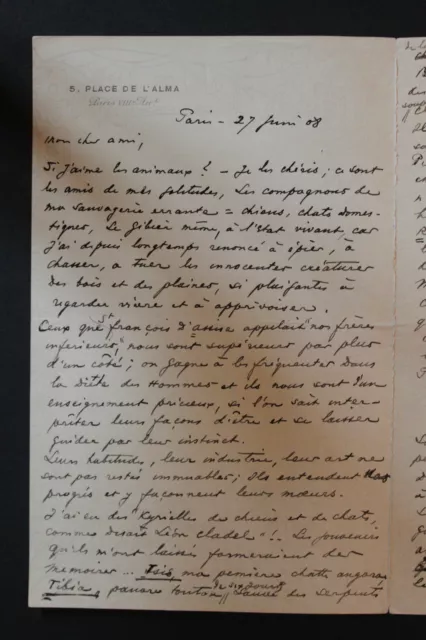 5, PLACE DE L'ALMA
Paris - 27 Juin 08
Mon cher ami,
Si j'aime les animaux ! - Je les chéris ; ce sont
les amis de mes solitudes, les compagnons de
ma sauvagerie errante = chiens, chats domes-
tiques, le gibier même, à l'état vivant, car
j'ai depuis longtemps renoncé à épier, à
chasser, à tuer les innocentes créatures
des bois et des plaines, si plaisantes à
regarder vivre et à apprivoiser.
Ceux que St françois d'assise appelait nos frères
inférieurs, nous sont supérieurs par plus
d'un côté ; on gagne à les fréquenter dans
la des Hommes et ils nous sont d'un
enseignement précieux, si l'on sait inter-
prêter leurs façons d'être et se laisser
guider par leur instinct.
Leurs habitudes, leur industrie, leur art ne
sont pas restés immuables ; ils entendent
progrès et y façonnent leurs mœurs.
J'ai eu des "Kyrielles de chiens et de chats,
comme disait Léon Cladel" ! - Les souvenirs
qu'ils m'ont laissés formeraient des
mémoires... Isis, ma première chatte angora,
pauvre toutou de six jours // sauvé des serpents